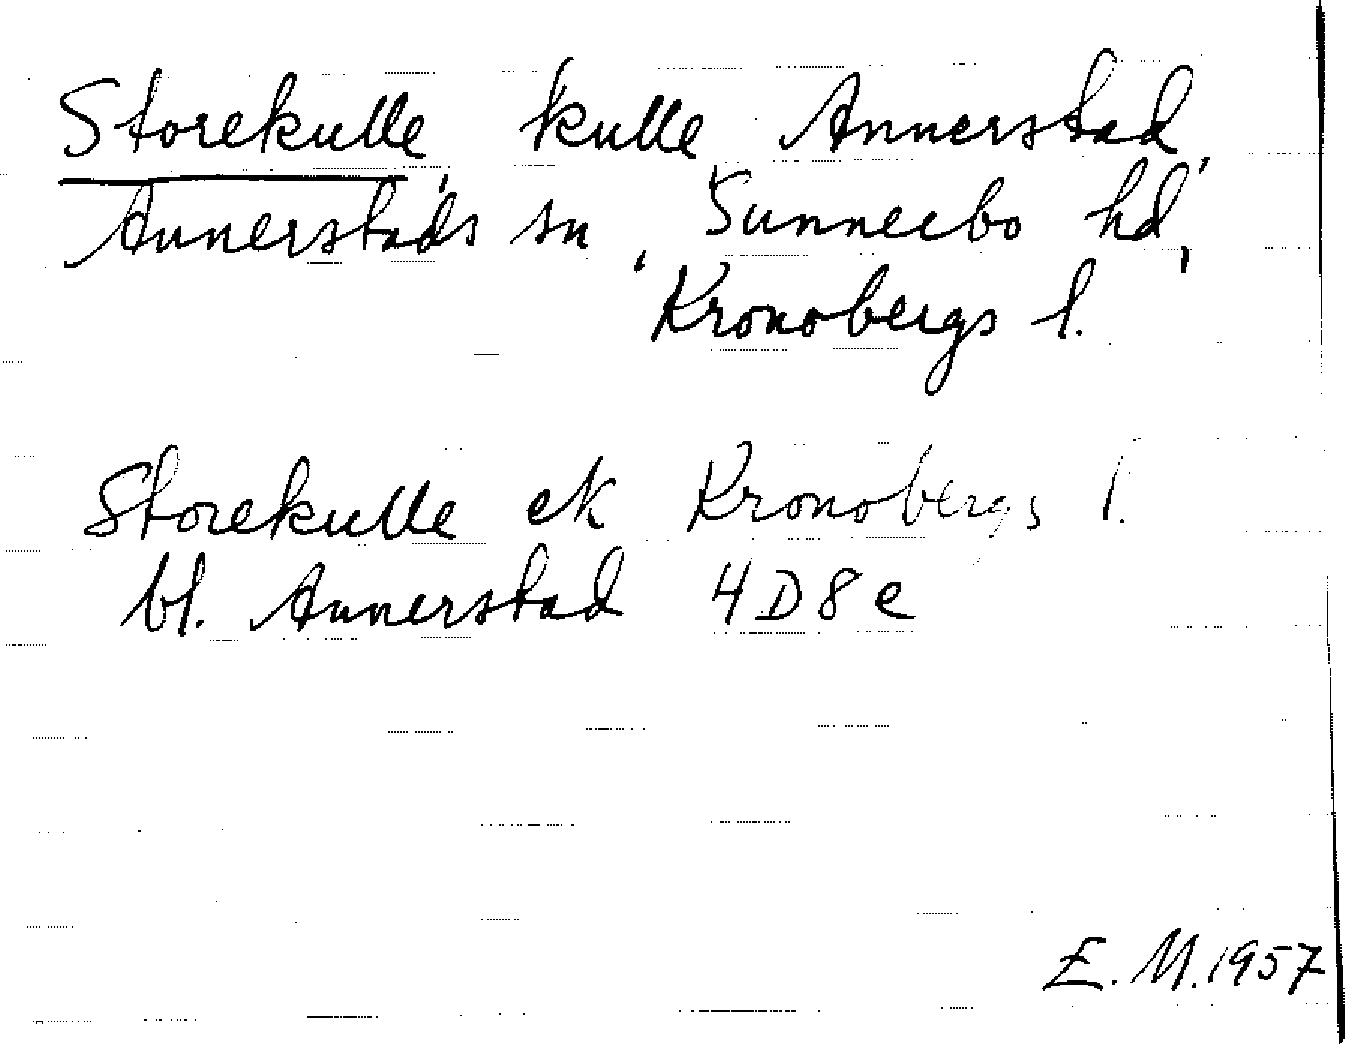 Storekulle, kulle, Annerstad,
Annerstads sn, Sunnerbo hd,
Kronobergs l.
Storekulle ek Kronobergs l.
bl. Annerstad 4D8e
E.M.1957